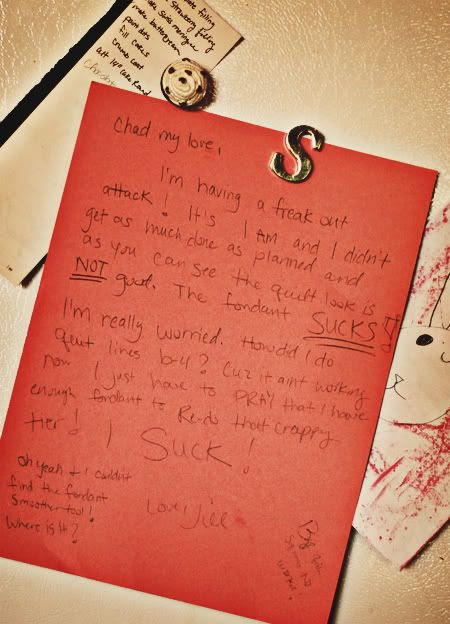 filling
Strawberry filling
make Swiss meringue
make buttercream
paint dots
fill cakes
crumb coat
S
Chad my love,
I'm having a freak out
attack! It's 1 AM and I didn't
get as much done as planned and
as you can see the quilt look is
NOT good. The fondant SUCKS!
I'm really worried. How did I do
quilt lines b-4? Cuz it aint working
now I just have to PRAY that I have
enough fondant to Re-do that crappy
tier! I SUCK!
oh yeah + I couldn't
find the fondant
Smoother tool!
Where is it?
Love, Jill